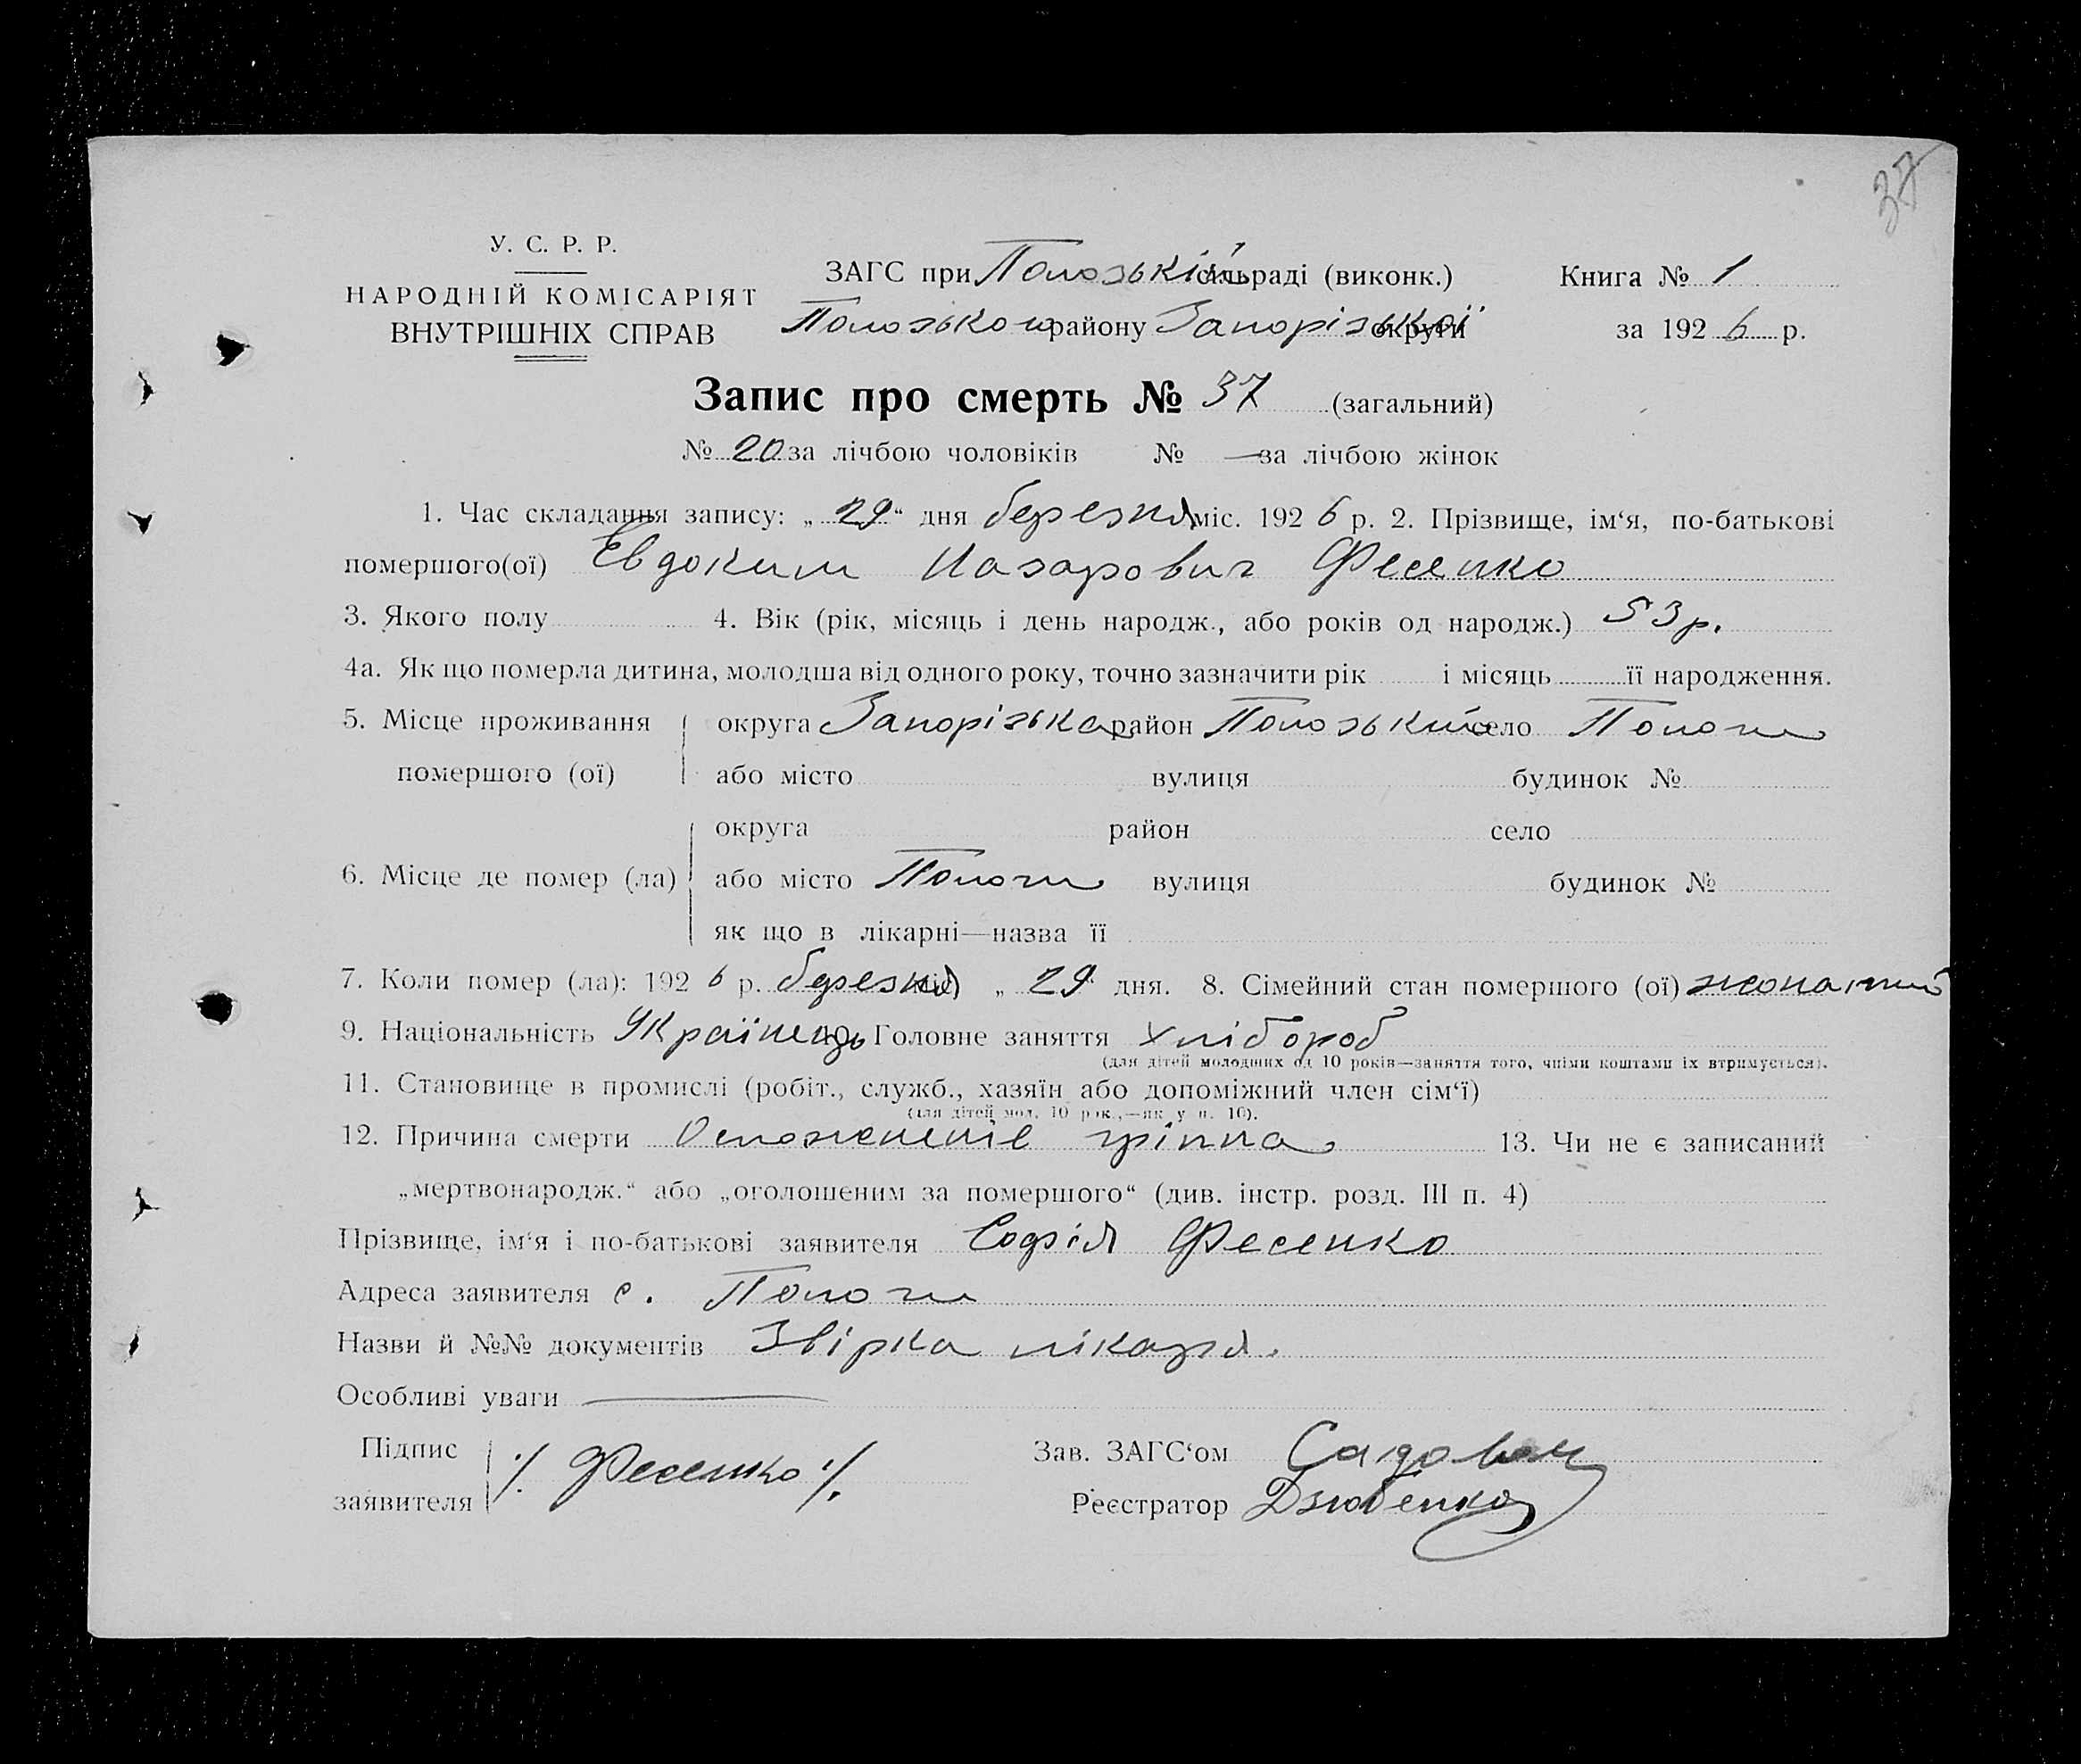 37
У. С. Р. Р.
НАРОДНІЙ КОМІСАРІЯТ
ВНУТРІШНІХ СПРАВ
ЗАГС при Пологській сільраді (виконк.)
Пологського району Запорізької округи
Книга № 1
за 1926 р.
Запис про смерть № 37 (загальний)
№ 20 за лічбою чоловіків № — за лічбою жінок
1. Час складання запису: „29“ дня березня міс. 1926 р. 2. Прізвище, ім‘я, по-батькові
помершого(ої) Евдоким Назарович Фесенко
3. Якого полу 4. Вік (рік, місяць і день народж., або років од народж.) 53 р.
4а. Як що померла дитина, молодша від одного року, точно зазначити рік і місяць її народження.
5. Місце проживання помершого (ої)
округа Запорізька район Пологський село Пологи
або місто вулиця будинок №
6. Місце де помер (ла)
округа район село
або місто Пологи вулиця будинок №
як що в лікарні—назва її
7. Коли помер (ла): 1926 р. березня міс. „29“ дня. 8. Сімейний стан помершого (ої) жонатий
9. Національність Українець 10. Головне заняття Хлібороб
(для дітей молодших од 10 років—заняття того, чиїми коштами їх втримується).
11. Становище в промислі (робіт., служб., хазяїн або допоміжний член сім‘ї)
(для дітей мол. 10 рок.,—як у п. 10).
12. Причина смерти Осложеніє гріппа 13. Чи не є записаний
„мертвонародж.“ або „оголошеним за помершого“ (див. інстр. розд. III п. 4)
Прізвище, ім‘я і по-батькові заявителя Софія Фесенко
Адреса заявителя с. Пологи
Назви й №№ документів Звірка лікаря.
Особливі уваги —
Підпис заявителя /Фесенко/
Зав. ЗАГС‘ом
Реєстратор Дзюбенко